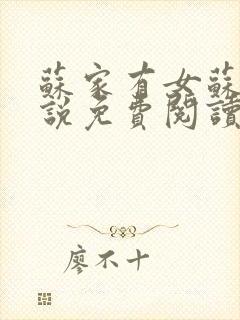 蘇家有女蘇
說免費閱讀
廖不十